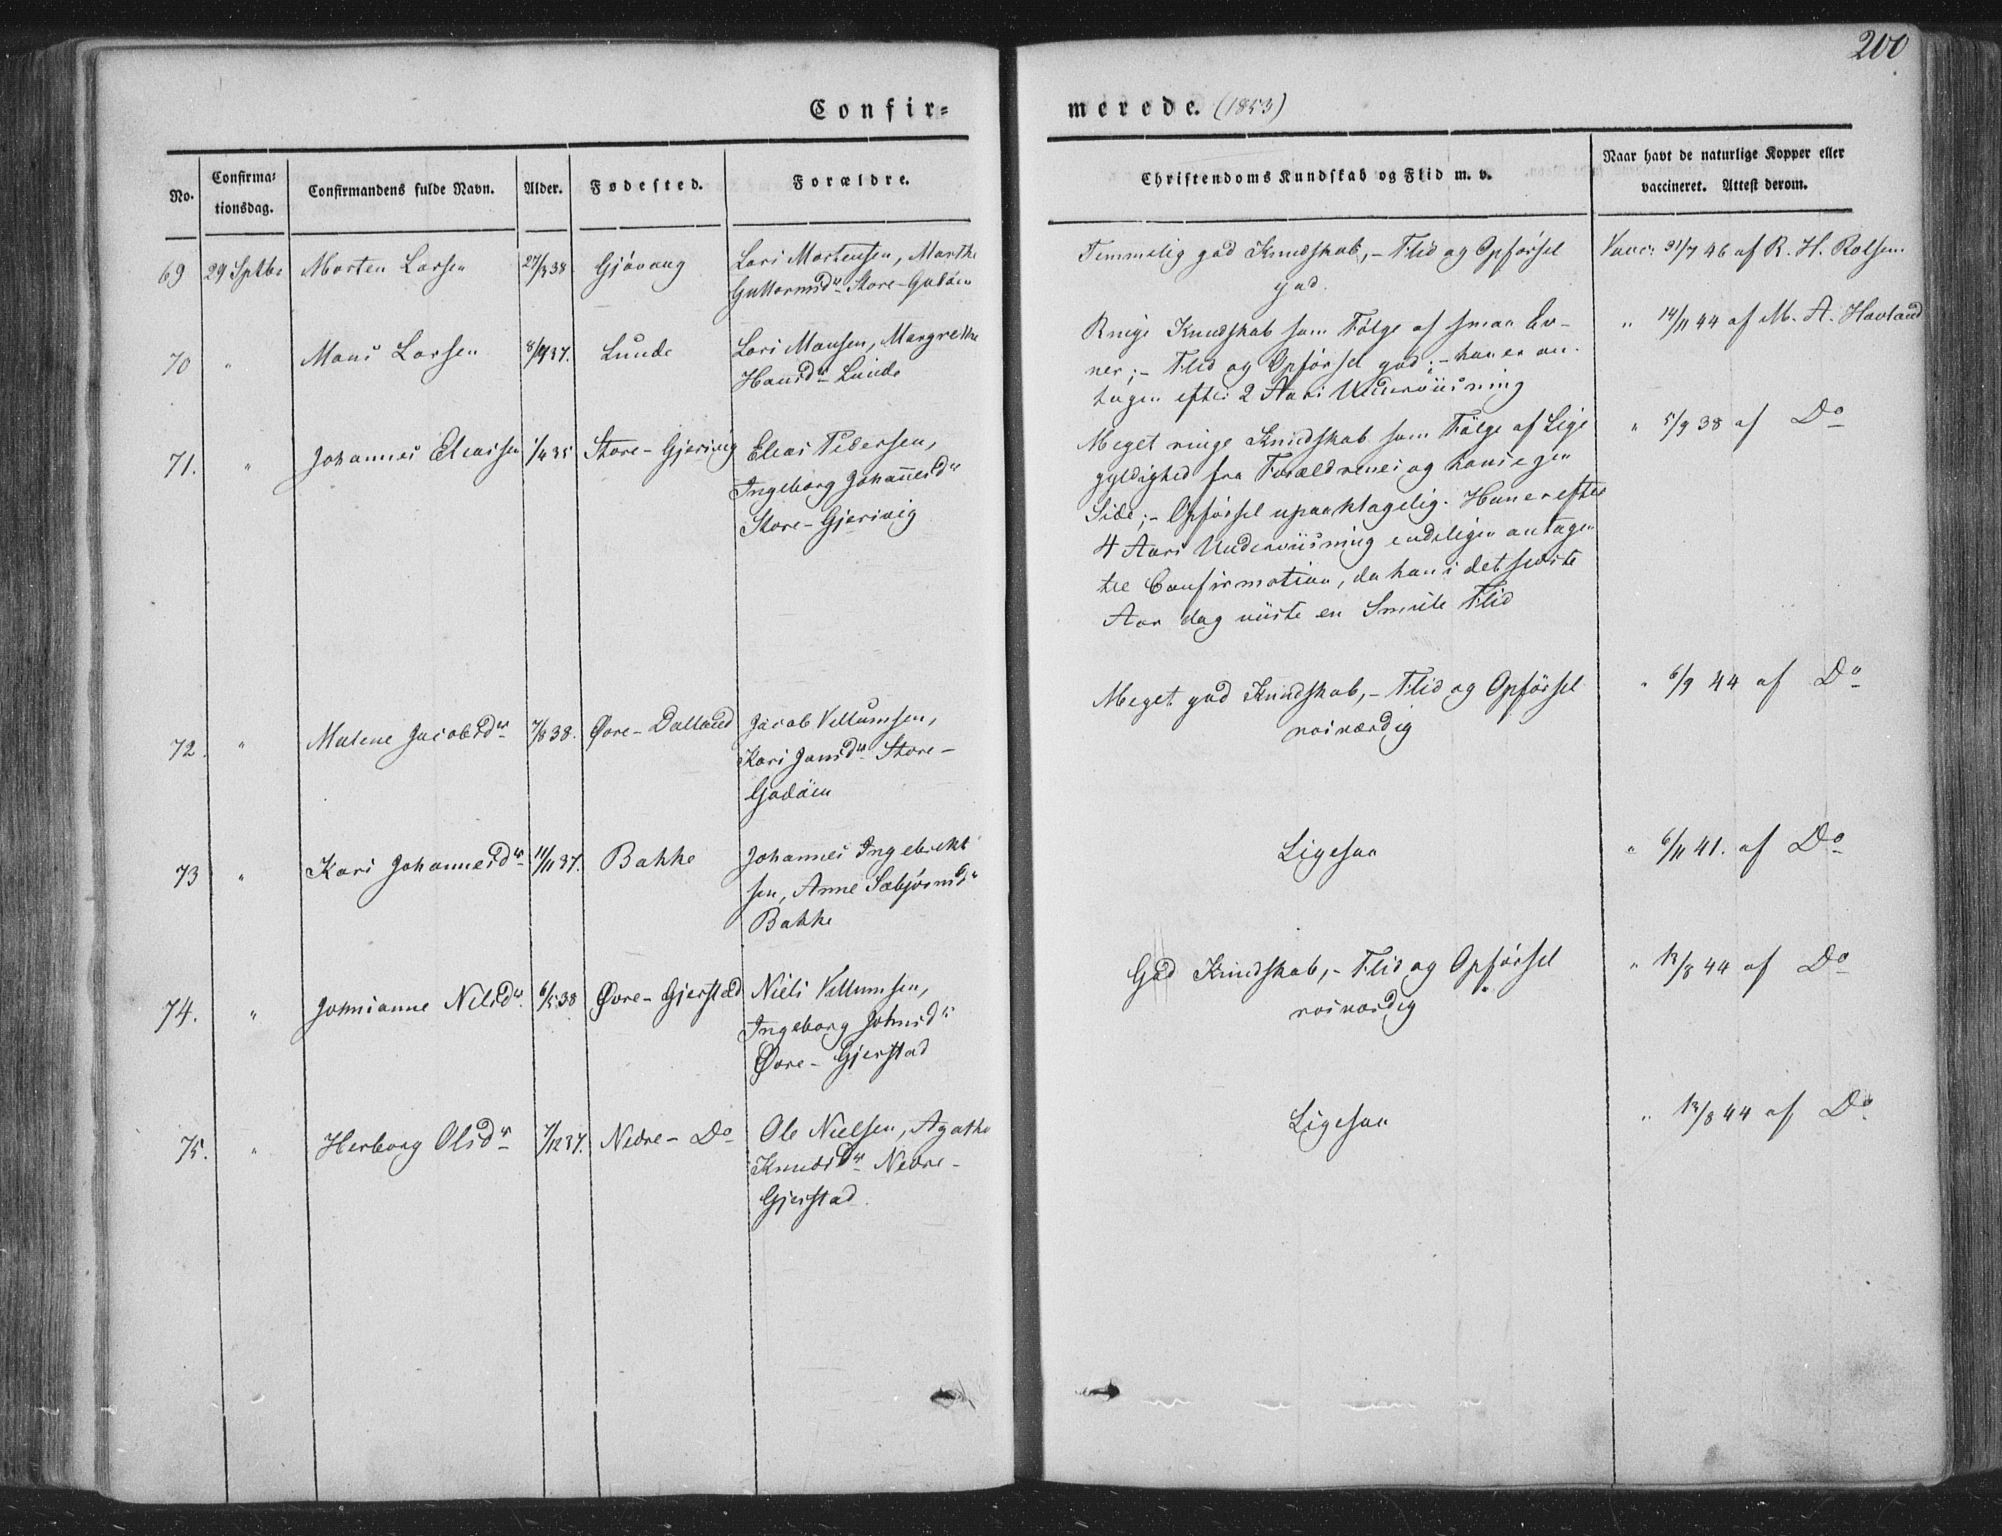 200
Confir-
merede. (1853)
No.
Confirma-
tionsdag.
Confirmandens fulde Navn.
Alder.
Fødested.
Forældre.
Christendoms Kundskab og Flid m. v.
Naar havt de naturlige Kopper eller
vaccineret. Attest derom.
69 29 Sptbr Morten Larsen 27/3 38 Gjøvaag Lars Mortensen, Marthe
Guttormsdr Store-Godøen
Temmelig god Kundskab, - Flid og Opførsel
god.
Vacc. 31/7 46 af R. H. Rolfsen
70 " Mons Larsen 37. Lunde Lars Monsen, Margrethe
Hansdr Lunde
Ringe Kundskab som Følge af smaa Ev-
ner; - Flid og Opførsel god; - han er an-
tagen efter 2 Aars Underviisning
" 14/11 44 af M. A. Havland
71. " Johannes Eleassen 1/4 35 Store-Gjervig Eleas Pedersen,
Ingeborg Johannesdr
Store-Gjervig
Meget ringe Kundskab som Følge af Lige
gyldighed fra Forældrenes og hans egen
Side; - Opførsel upaaklagelig. Han er efter
4 Aars Underviisning endeligen antagen
til Confirmation, da han i det sidste
Aar dog viiste en Smule Flid
" 5/9 38 af Do
72. " Malene Jacobsdr 7/8 38. Øvre-Dalland Jacob Vellumsen,
Kari Jansdr Store-
Godøen
Meget god Kundskab, - Flid og Opførsel
rosværdig
" 6/9 44 af Do
73 " Kari Johannesdr 11/11 37. Bakke Johannes Ingebrikt
sen, Anne Sæbjørnsdr
Bakke
Ligesaa
" 6/11 41. af Do
74. " Johnsanne Nilsdr 6/5 38 Øvre-Gjerstad Niels Vellumsen,
Ingeborg Johnsdr
Øvre-Gjerstad
God Kundskab, - Flid og Opførsel
rosværdig
" 13/8 44 af Do
75. " Herborg Olsdr 7/12 37. Nedre- Do Ole Nielsen, Agatha
Knudsdr Nedre-
Gjerstad.
Ligesaa
" 13/8 44 af Do